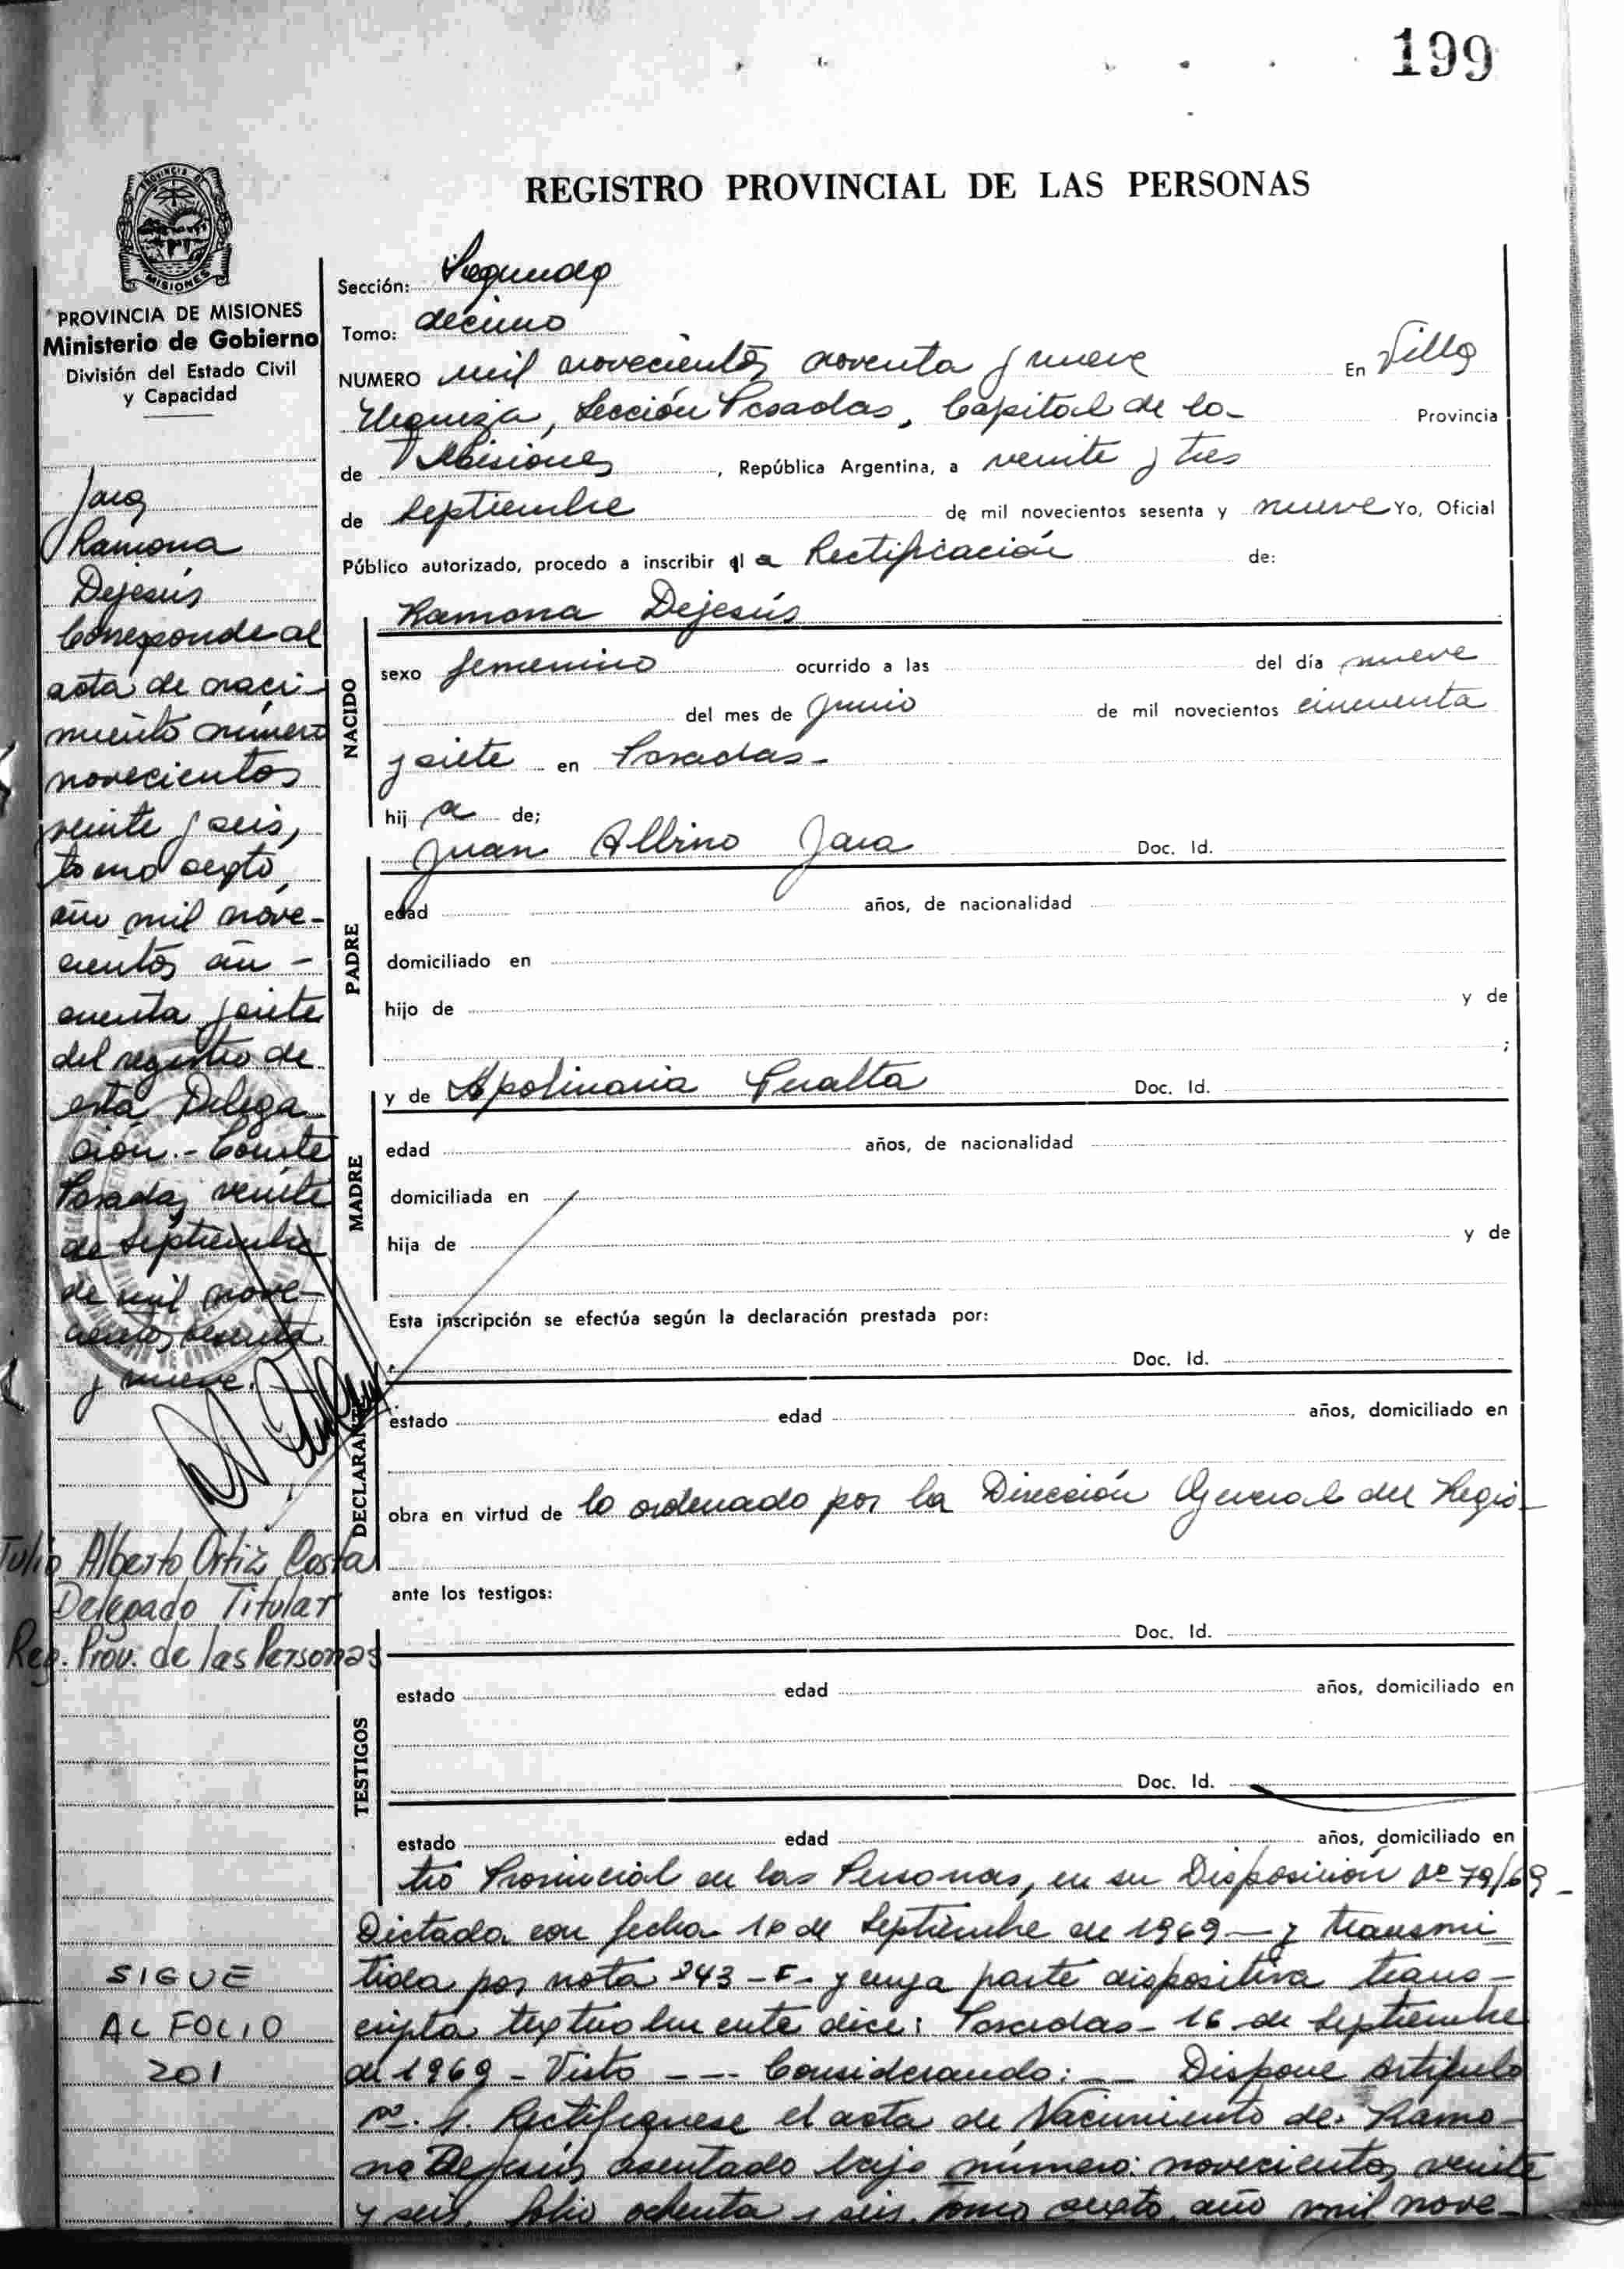 199
REGISTRO PROVINCIAL DE LAS PERSONAS
MISIONES
PROVINCIA DE MISIONES
Ministerio de Gobierno
División del Estado Civil
y Capacidad
Jara
Ramona
Dejesús
Corresponde al
acta de naci-
miento número
novecientos
veinte y seis,
tomo sexto,
año mil nove-
cientos cin-
cuenta y siete
del registro de
esta Delega
ción.- Conste
Posadas, veinte
de septiembre
de mil nove-
cientos sesenta
y nueve.
Tulio Alberto Ortiz Costa
Delegado Titular
Reg. Prov. de las Personas
SIGUE
AL FOLIO
201
Sección: Segunda
Tomo: décimo
NUMERO mil novecientos noventa y nueve En Villa
Urquiza, Sección Posadas, Capital de la- Provincia
de Misiones, República Argentina, a veinte y tres
de Septiembre de mil novecientos sesenta y nueve Yo, Oficial
Público autorizado, procedo a inscribir el a Rectificación de:
NACIDO
Ramona Dejesús
sexo femenino ocurrido a las del día nueve
del mes de Junio de mil novecientos cincuenta
y siete en Posadas-
hij a de;
PADRE
Juan Albino Jara Doc. Id.
edad años, de nacionalidad
domiciliado en
hijo de y de
;
MADRE
y de Apolinaria Peralta Doc. Id.
edad años, de nacionalidad
domiciliada en
hija de y de
Esta inscripción se efectúa según la declaración prestada por:
DECLARANTE
Doc. Id.
estado edad años, domiciliado en
obra en virtud de lo ordenado por la Dirección General del Regis-
ante los testigos:
TESTIGOS
Doc. Id.
estado edad años, domiciliado en
Doc. Id.
estado edad años, domiciliado en
tro Provincial de las Personas, en su Disposición Nº 79/69-
Dictada con fecha 16 de Septiembre de 1969- y transmi
tida por nota 243- y cuya parte dispositiva trans-
cripta textualmente dice: Posadas- 16 de Septiembre
de 1969 - Visto --- Considerando: -- Dispone Artículo
nº. 1. Rectifíquese el acta de Nacimiento de: Ramo
na Dejesús, asentado bajo número: novecientos veinte
y seis, folio ochenta y seis, tomo sexto, año mil nove-